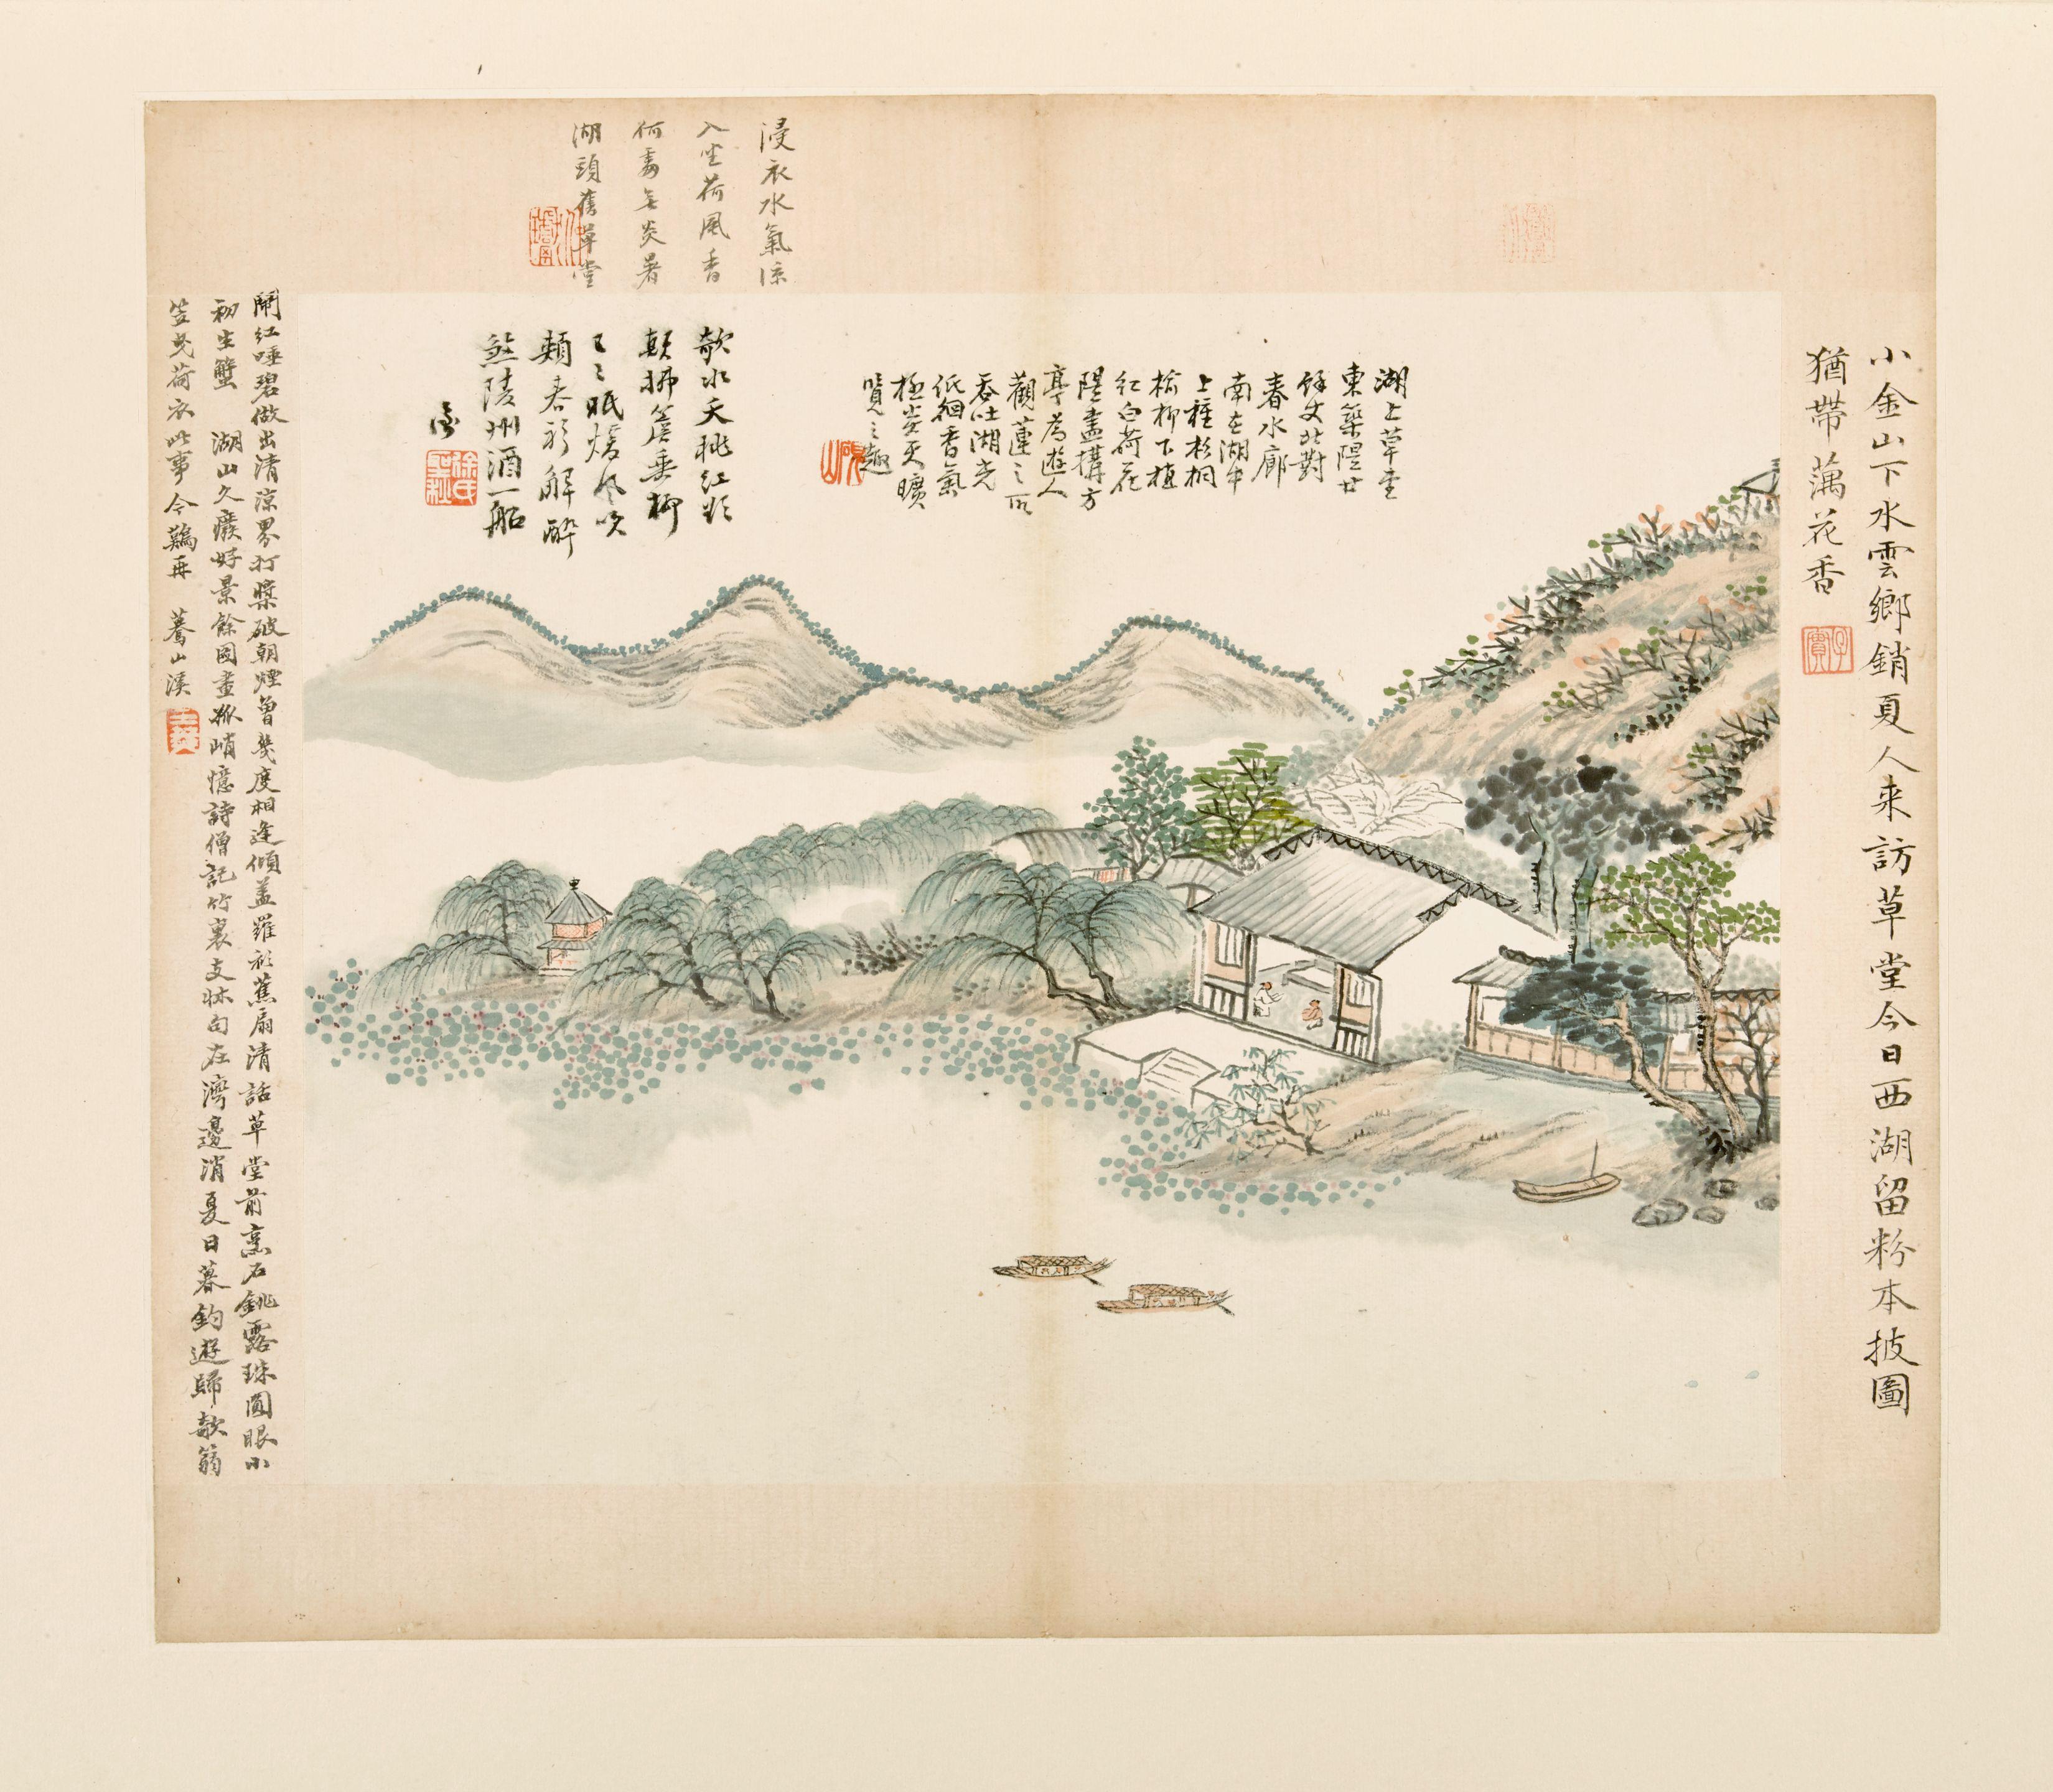 小金山下水雲鄉銷夏人来訪草堂今日西湖留粉本披圖
猶帶藕花香
湖上草堂
東築隄廿
餘丈北對
春水廊
南在湖中
上種杉桐
榆柳下植
紅白荷花
隄盡構方
亭為遊人
觀蓮之所
吞吐湖光
低徊香氣
極炎天曠
覽之趣
浸衣水氣涼
入坐荷風香
何處無炎暑
湖頭舊草堂
欹水夭桃紅欲
頰春衫解酔
蘭陵州酒一船
鬧紅唾碧做出清涼界打槳破朝煙曾幾度相逢傾盖羅衫蕉扇清話草堂前烹石銚露珠圓眼小
初生蟹 湖山久癈好景餘圖畫孤峭憶詩僧記竹裏支牀句在灣邊消夏日暮釣遊歸欹箬
笠曳荷衣此事今難再 驀山溪